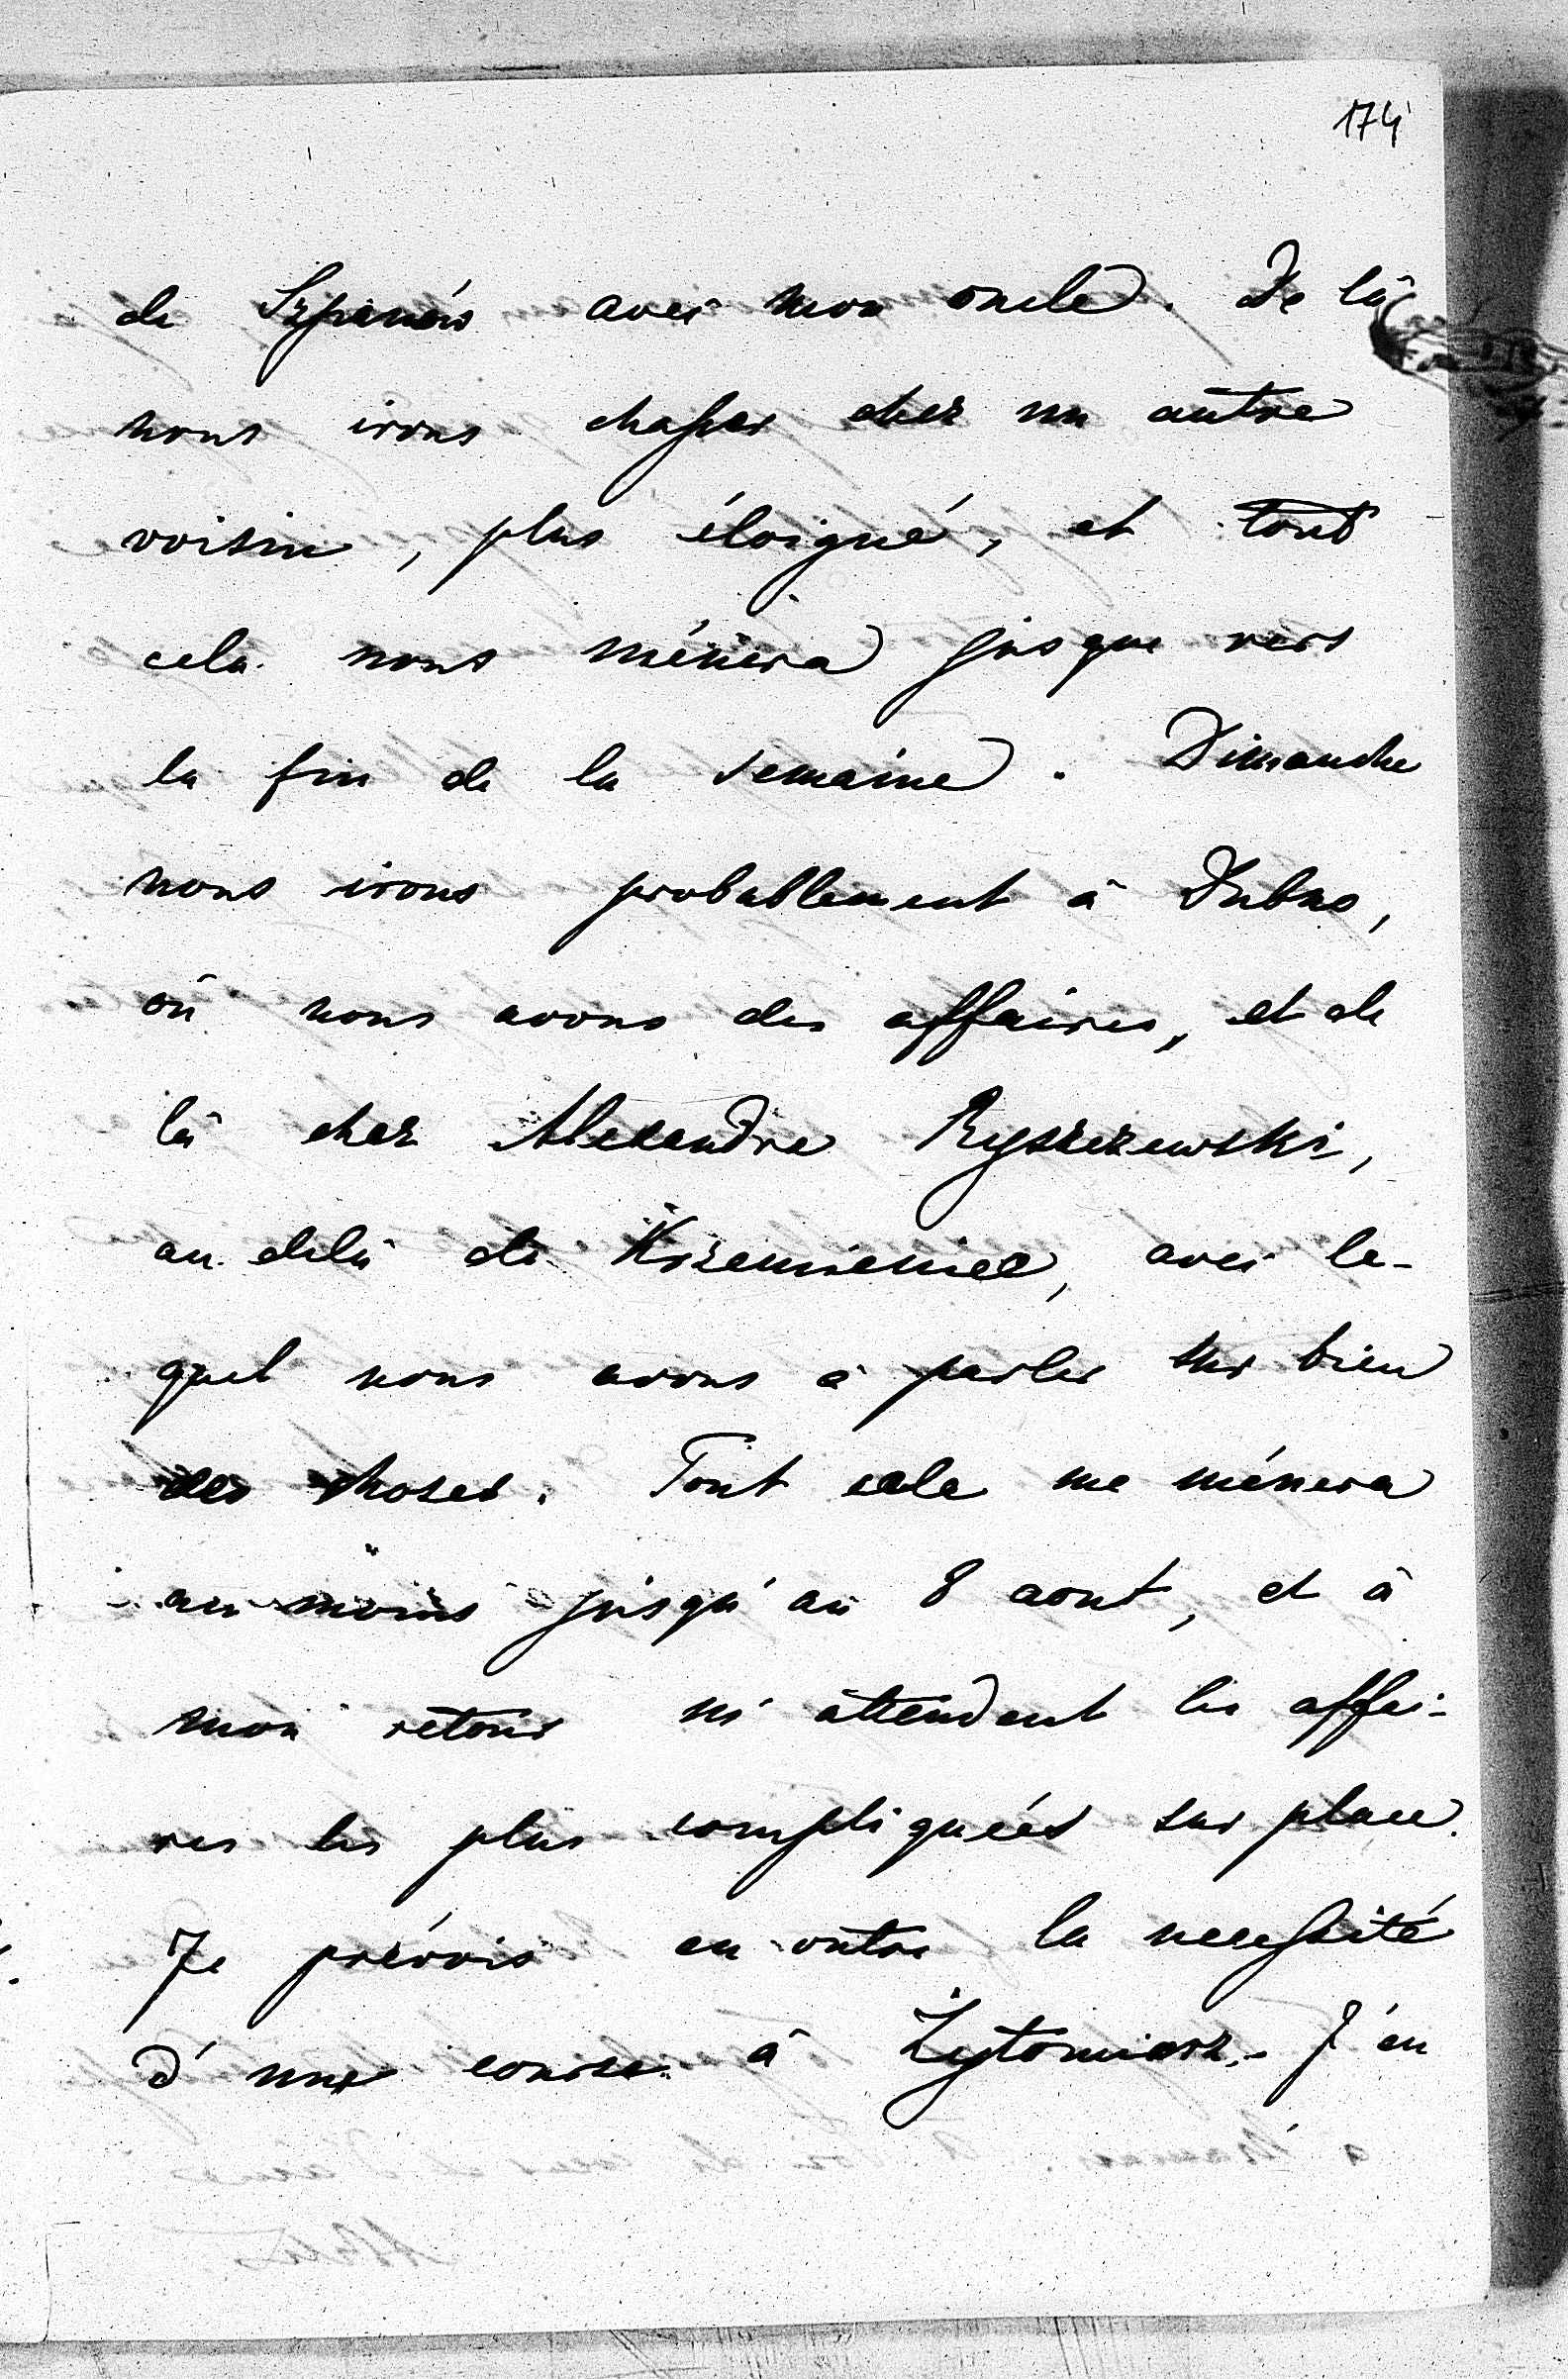 174
de Szpanów avec mon oncle. De là
nous irons chasser chez un autre
voisin, plus éloigné, et tout
cela nous ménera jusque vers
la fin de la semaine. Dimanche
nous irons probablement à Dubno,
où nous avons des affaires, et de
là chez Alexandre Ryszczewski,
au delà de Krzemieniec, avec le-
quel nous avons à parler sur bien
des choses. Tout cela me ménera
au moins jusqu'au 8 aout, et à
mon retour m'attendent les affai-
res les plus compliquées sur place.
Je prévois en outre la necessité
d'une course à Żytomierz. - J'en